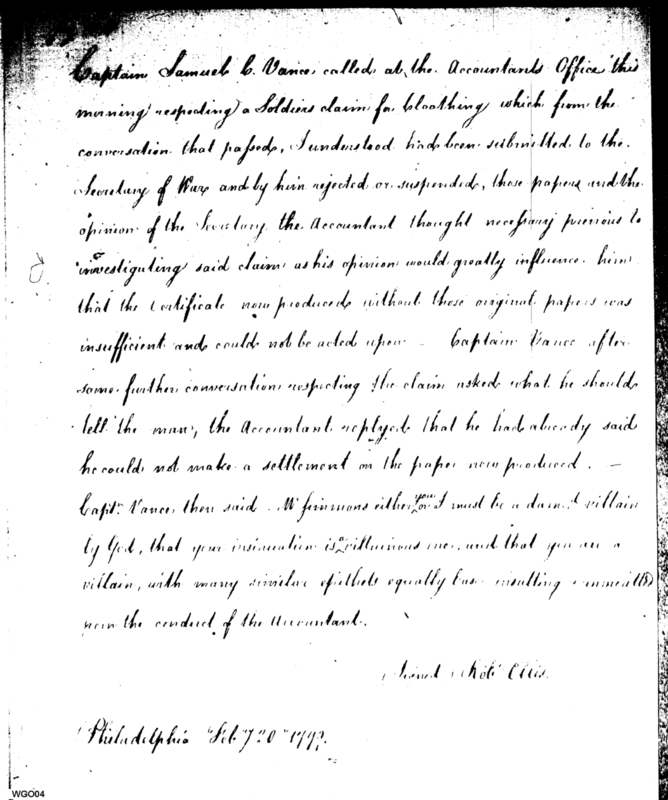 Captain Samuel C. Vance called at the Accountants Office this
morning respecting a Soldiers claim for cloathing which from the
conversation that passed, I understood had been submitted to the
Secretary of War and by him rejected or suspended, those papers and the
opinion of the Secretary the Accountant thought necessary previous to
investigating said claim as his opinion would greatly influence him
that the certificate now produced without those original papers was
insufficient and could not be acted upon – Captain Vance after
some further conversation respecting the claim asked what he should
tell the man, the Accountant replyed that he had already said
he could not make a settlement on the paper now produced. –
Captn. Vance then said Mr Simmons either you or I must be a damn'd villain
by God, that your insinuation is a villainous one, and that you are a
villain, with many similar epithets equally base insulting & unmerited
from the conduct of the Accountant.
Signed Robt Ellis.
Philadelphia Feby 20th
WGO04